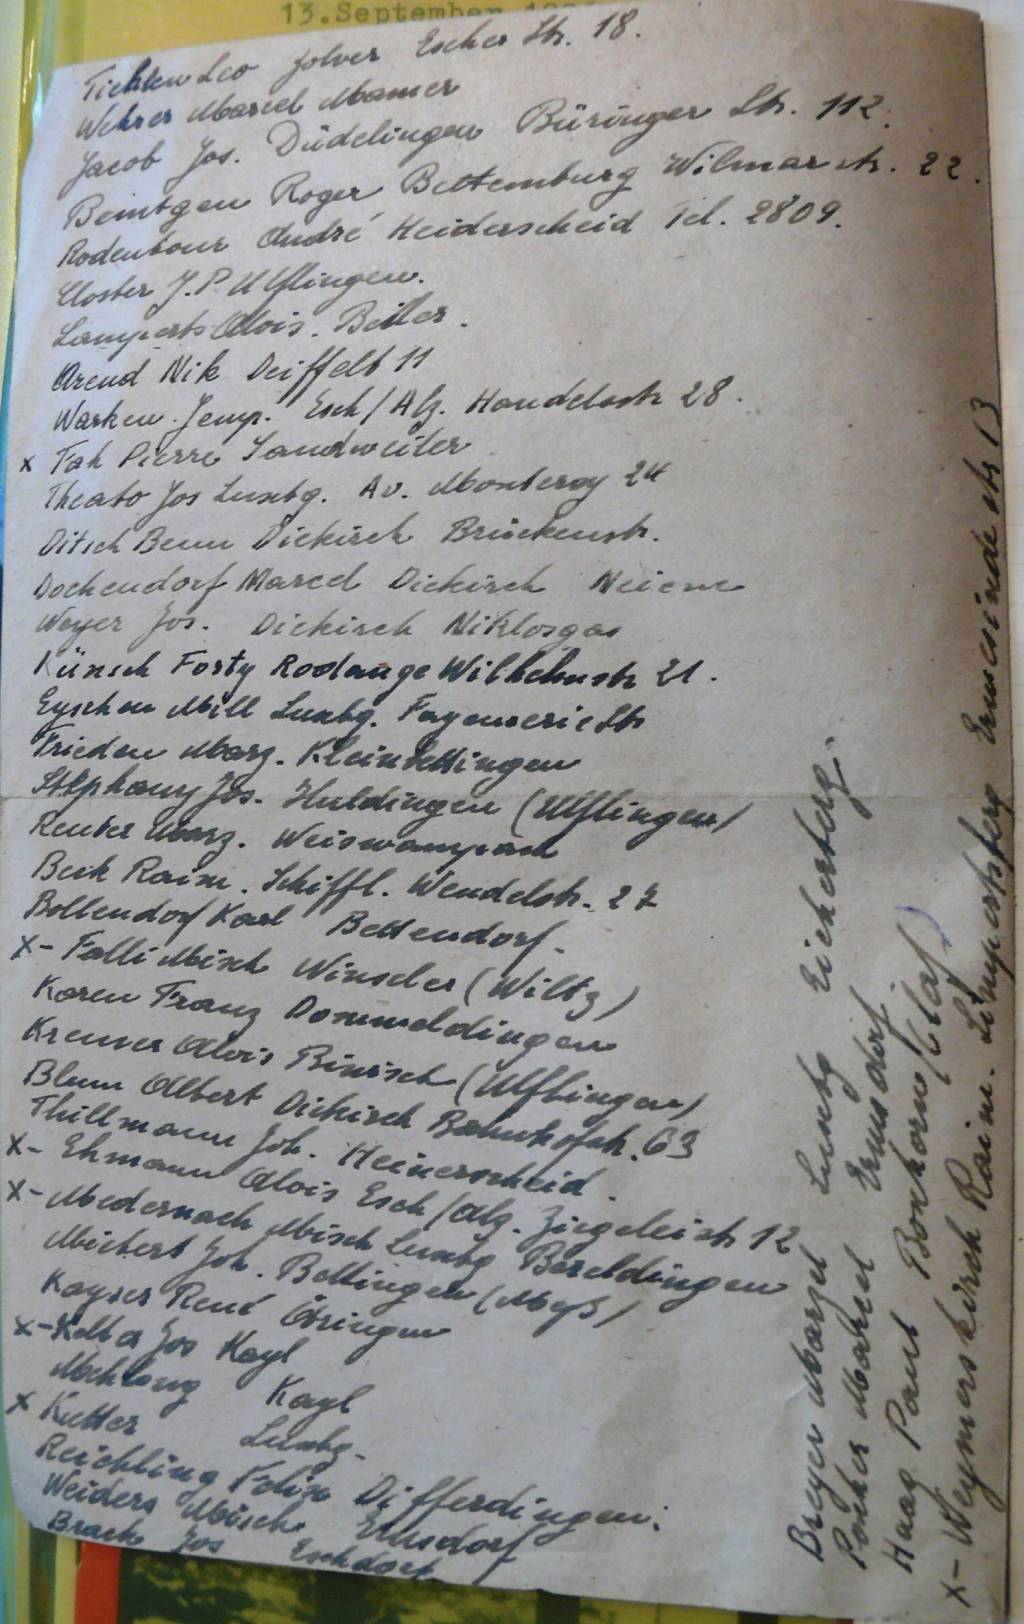 13. September
Leo Zolver Escher Str. 18.
Wehrer Marcel Mamer
Jacob Jos. Düdelingen Büringer Str. 112.
Beintgen Roger Bettemburg Wilmar str. 22.
Rodenbour André Heiderscheid Tel. 2809.
Closter J.P. Ulflingen.
Lamperts Alois. Beiler.
Arend Nik Deiffelt 11
Warken Jemp. Esch/Alz. Handelsstr 28.
x Fak Pierre Sandweiler
Theato Jos Luxbg. Av. Monterey 24
Ditsch Benn Diekirch Brückenstr.
Dochendorf Marcel Diekirch
Weyer Jos. Diekirch Niklosgas
Künsch Forty Rodange Wilhelmstr 21.
Eyschen Mill Luxbg. Fayencerie Str
Frieden Marz. Kleinbettingen
Stephany Jos. Huldingen (Ulflingen)
Reuter Marz. Weiswampach
Beck Raim. Schiffl. Wendelstr. 27
Bollendorf Karl Bettendorf.
x- Falli Misch Winseler (Wiltz)
Karen Franz Dommeldingen
Kremer Alois Binsch (Ulflingen)
Blum Albert Diekirch Bahnhofstr. 63
Thillmann Joh. Heinerscheid.
x- Ehmann Alois Esch/Alz. Ziegeleistr 12
x- Medernach Misch Luxbg Bereldingen
Joh. Bellingen (Meß)
Kayser René Ösingen
x- Jos Kayl
Kayl
x Kutter Luxbg.
Reichling Felix Differdingen.
Weiders Misch Ermsdorf
Brach Jos Eschdorf
Breyer Marzel Luxbg Eicherberg.
Marcel Ermsdorf
Haag Paul
x- Weymerskirch Raim. Limpertsberg Ermesinde str 13